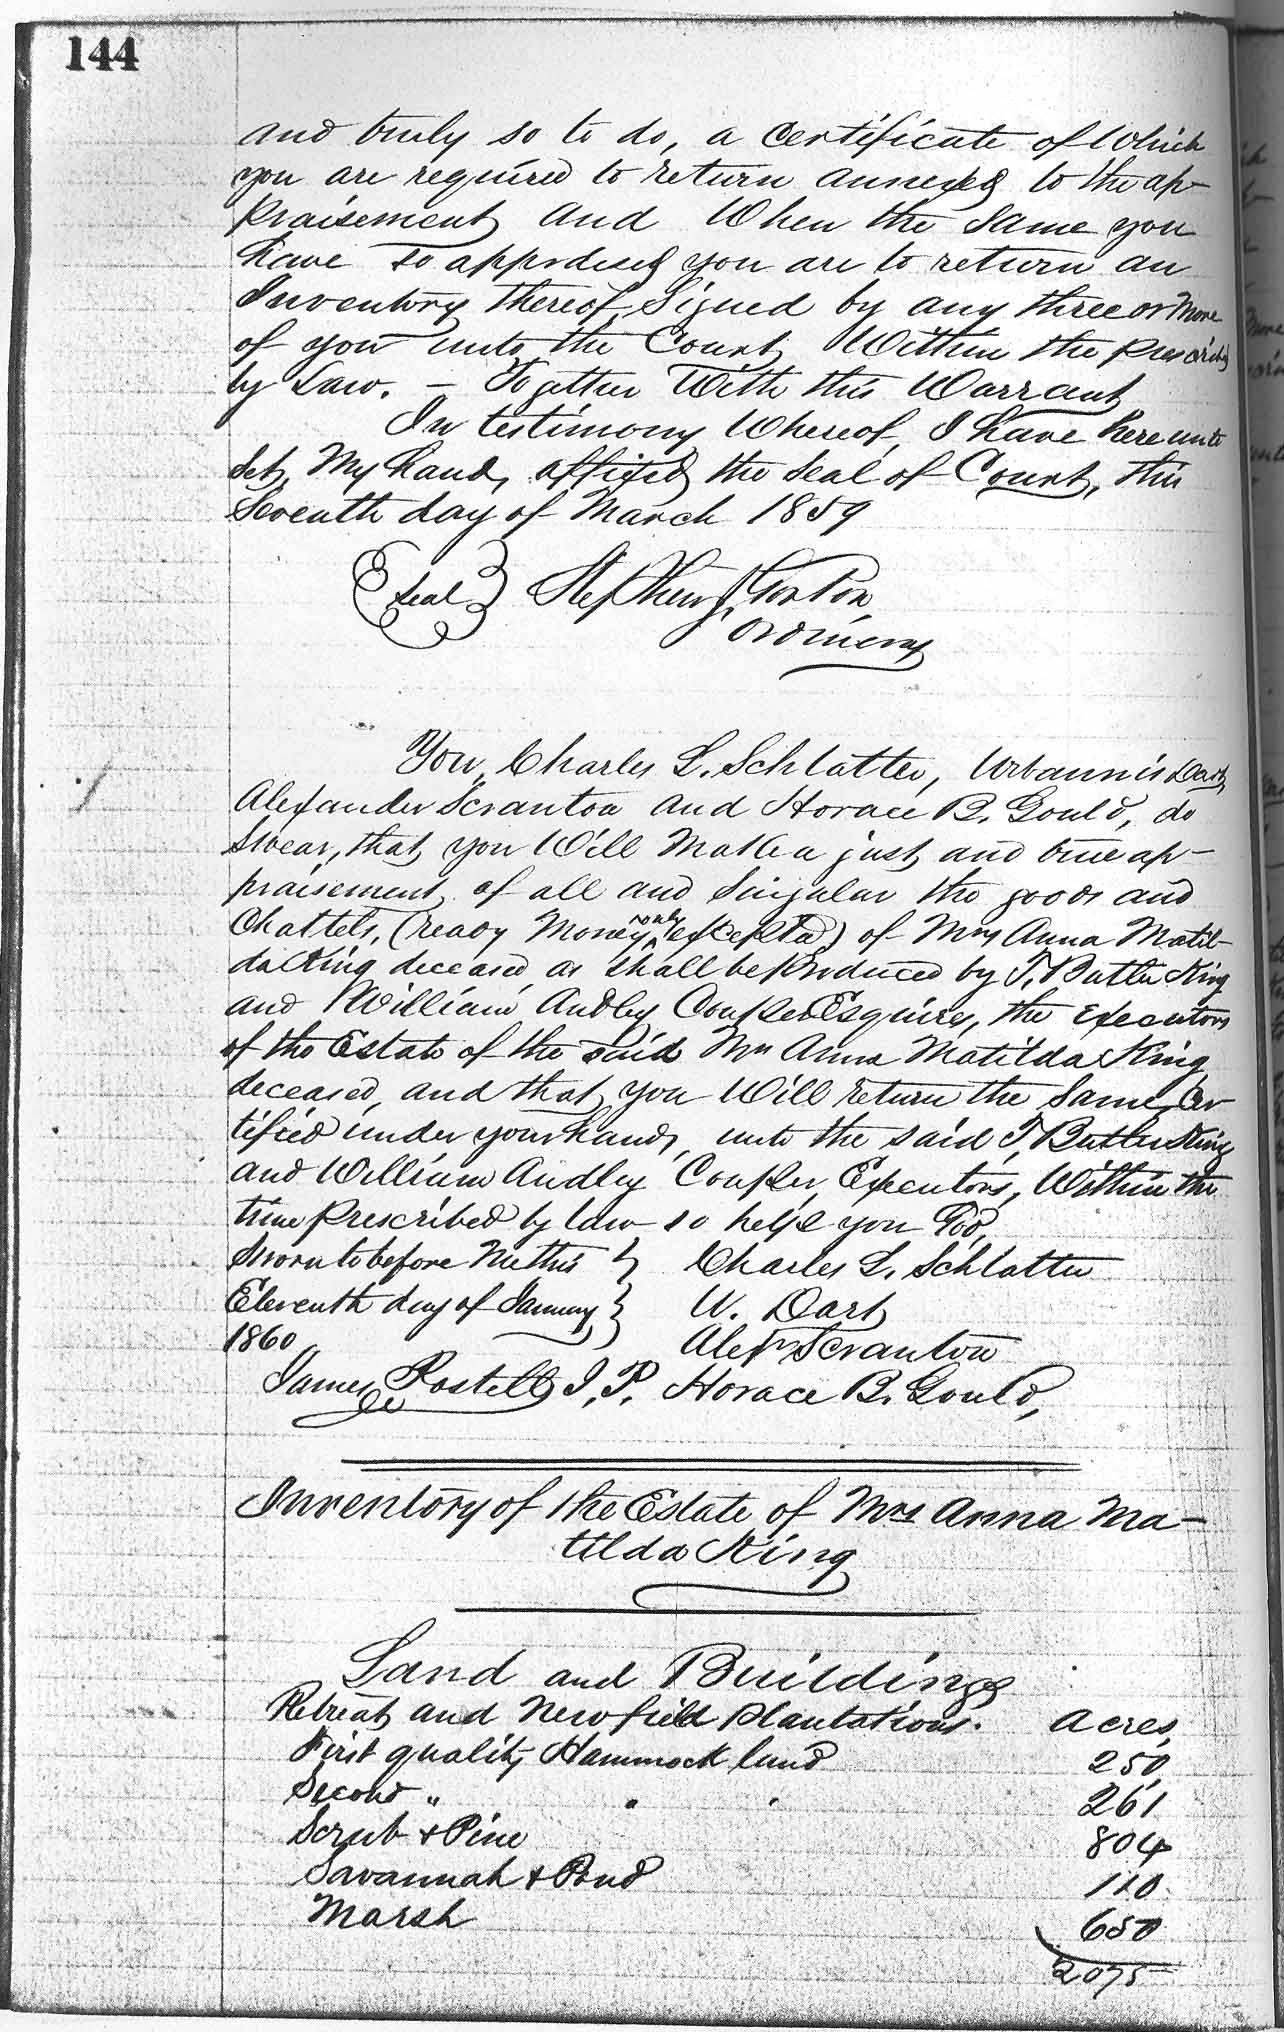 144
and truly so to do, a certificate of Which
you are required to return annexed to the ap-
praisement, and When the same you
have so appraised you are to return an
Inventory thereof, Signed by any three or More
of you unto the Court, Within the prescribed
by Law. - Together With this Warrant
In testimony Whereof, I have hereunto
Set, My hand, affixed the seal of Court, this
Seventh day of March 1859
Seal
Stephen J. Gorton,
Ordinary
You, Charles L. Schlatter, Urbannis Dart,
Alexander Scranton and Horace B. Gould, do
Swear, that, you Will Make a just, and true ap-
praisement, of all and Singular the goods and
Chattels, (ready Money only excepted) of Mrs Anna Matil-
da King deceased as shall be produced by T. Butler King
and William Audley Couper Esquires, the Executors
of the Estate of the said Mrs Anna Matilda King
deceased, and that, you Will return the Same, Cer-
tified under your hand, unto the said T. Butler King
and William Audley Couper, Executors, Within the
time prescribed by law so help you God,
Sworn to before Me this } Charles L. Schlatter
Eleventh day of January } U. Dart,
1860 Alexr Scranton
James Postell J. P. Horace B. Gould,
Inventory of the Estate of Mrs Anna Ma-
tilda King
Land and Buildings
Retreat, and Newfield Plantations. Acres,
First quality, Hammock land 250,
Second " " " 261
Scrub & Pine 804
Savannah & Pond 110
Marsh 650
2075